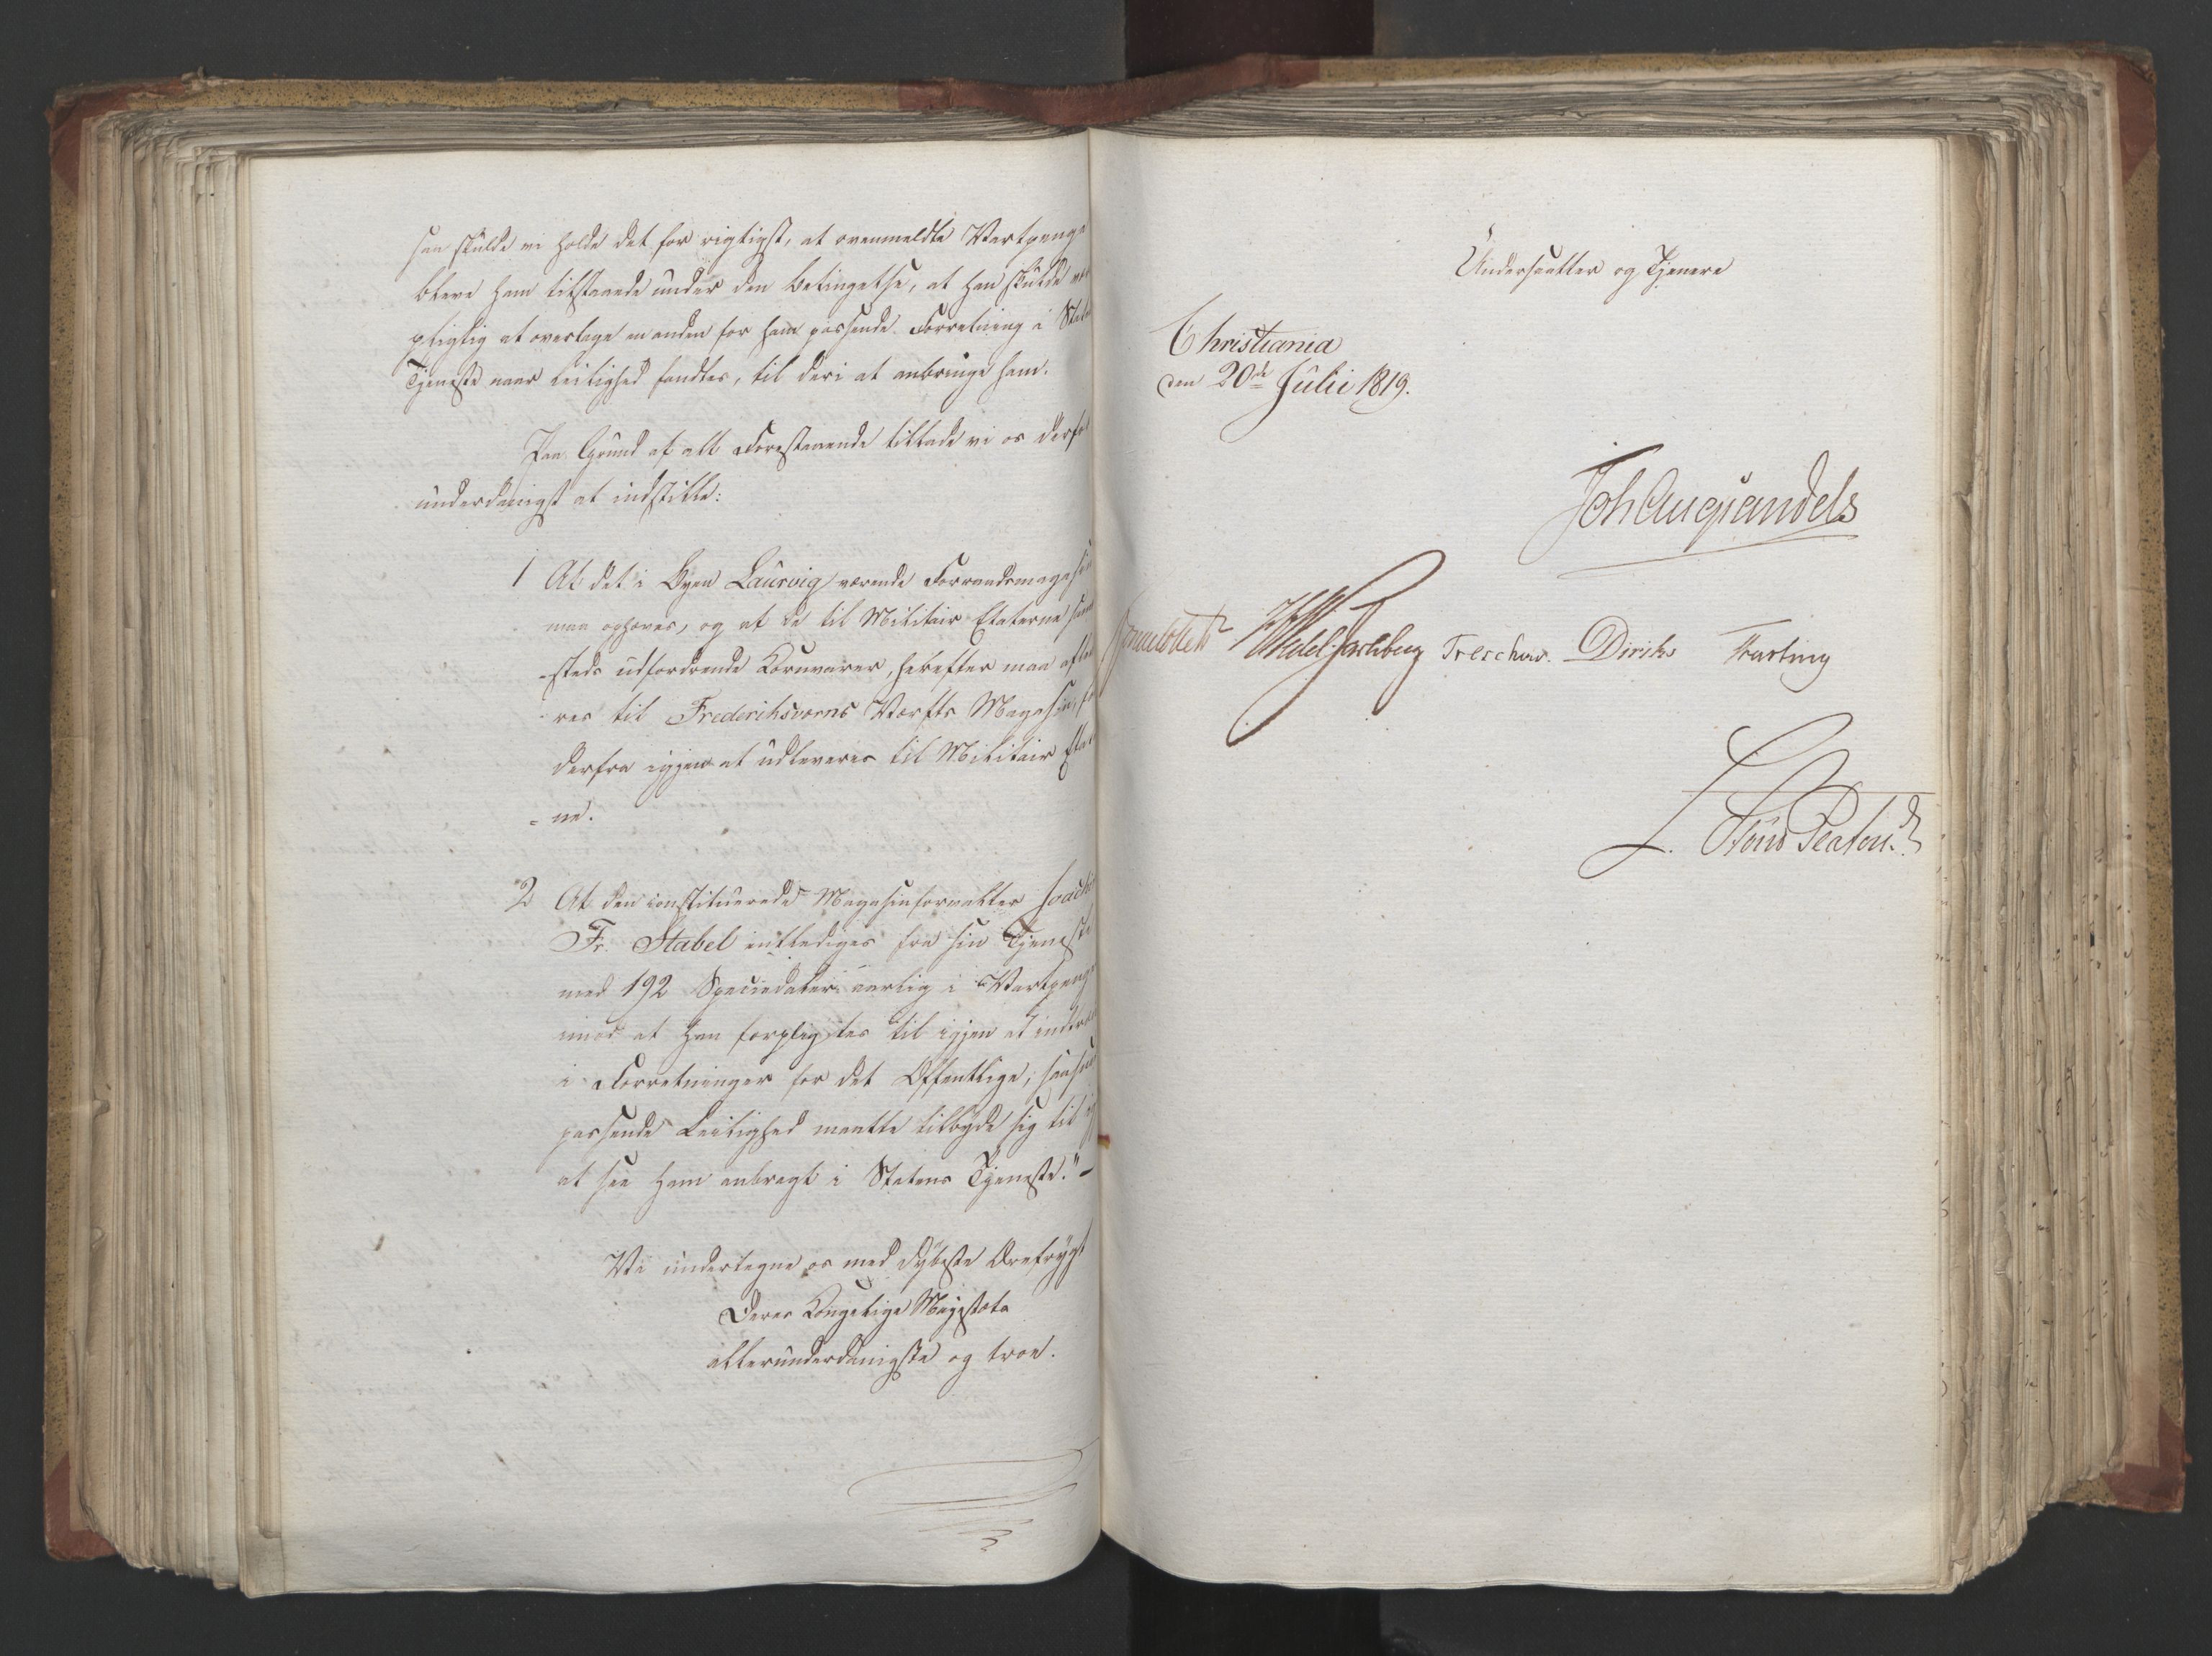 saa skulde vi holde det for rigtigst, at ovenmeldte Vartpenge
bleve ham tilstaaede under den Betingelse, at han skulde være
pligtig at overtage en anden for ham passende Forretning i Statens
Tjeneste naar Leilighed fandtes, til deri at anbringe ham.
Paa Grund af alt Forestaaende tillade vi os derfor
underdanigst at indstille:
1 At det i Byen Laurvig værende Forraadsmagasin
maa ophæves, og at de til Militair Etaterne sam-
-steds udfordrende Kornvarer, herefter maa afleve-
res til Frederiksværns Værfts Magasin, for
derfra igjen at udleveres til Militair Etater-
-ne.
2 At den constituerede Magasinforvalter Joachim
Fr. Stabel entlediges fra sin Tjeneste
med 192 Speciedaler aarlig i Vartpenge
imod at han forpligtes til igjen at indtræde
i Forretninger for det Offentlige, saasnart
passende Leilighed maatte tilbyde sig til
at see ham anbragt i Statens Tjeneste." -
Vi undertegne os med dybeste Ærefrygt
Deres Kongelige Majestæts
allerunderdanigste og troe.
Undersaatter og Tjenere
Christiania
den 20de Julii 1819.
Joh Aug Sandels
Sommerfeldt Wedel Jarlsberg Treschow. Diriks Fasting
L. Stoud Platou.